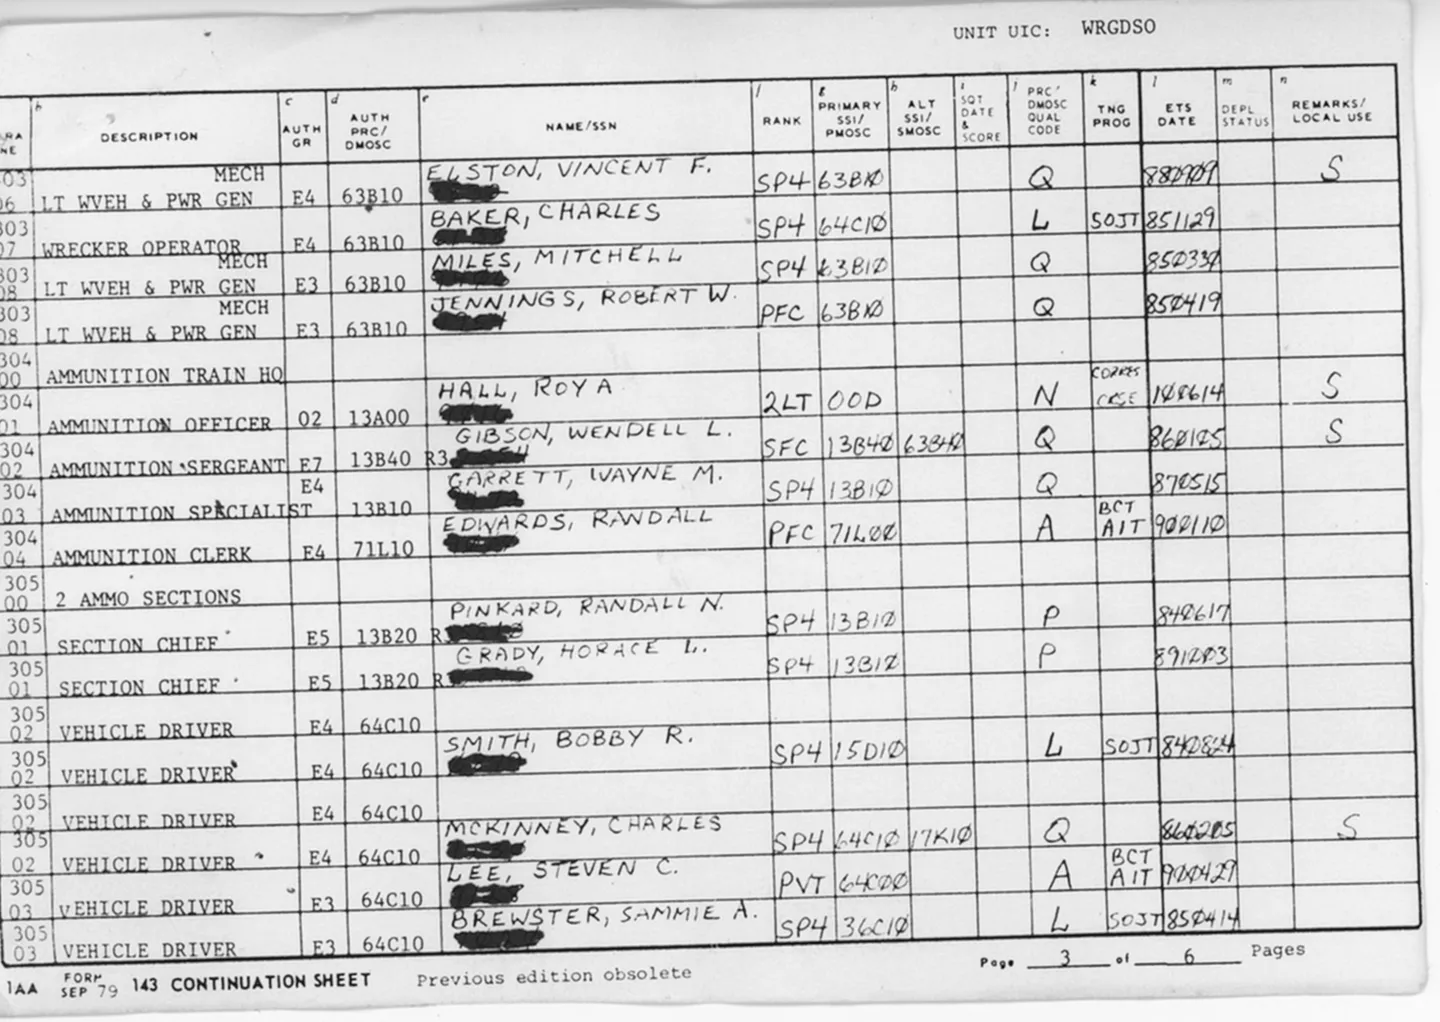 UNIT UIC: WRGDSO
b c d e f g h i j k l m n
DESCRIPTION AUTH GR AUTH PRC/ DMOSC NAME/SSN RANK PRIMARY SSI/ PMOSC ALT SSI/ SMOSC SQT DATE & SCORE PRC/ DMOSC QUAL CODE TNG PROG ETS DATE DEPL STATUS REMARKS/ LOCAL USE
303 MECH ELSTON, VINCENT F.
06 LT WVEH & PWR GEN E4 63B10 SP4 63B10 Q 880909 S
303 BAKER, CHARLES
07 WRECKER OPERATOR E4 63B10 SP4 64C10 L SOJT 851129
303 MECH MILES, MITCHELL
08 LT WVEH & PWR GEN E3 63B10 SP4 63B10 Q 850330
303 MECH JENNINGS, ROBERT W.
08 LT WVEH & PWR GEN E3 63B10 PFC 63B10 Q 850419
304
00 AMMUNITION TRAIN HQ
304 HALL, ROY A CORRES
01 AMMUNITION OFFICER 02 13A00 2LT 00D N CRSE 100614 S
304 GIBSON, WENDELL L.
02 AMMUNITION SERGEANT E7 13B40 R3 SFC 13B40 63B40 Q 860105 S
304 E4 GARRETT, WAYNE M.
03 AMMUNITION SPECIALIST 13B10 SP4 13B10 Q 870515
304 EDWARDS, RANDALL BCT
04 AMMUNITION CLERK E4 71L10 PFC 71L00 A AIT 900110
305
00 2 AMMO SECTIONS
305 PINKARD, RANDALL N.
01 SECTION CHIEF E5 13B20 SP4 13B10 P 840617
305 GRADY, HORACE L.
01 SECTION CHIEF E5 13B20 SP4 13B10 P 891003
305
02 VEHICLE DRIVER E4 64C10
305 SMITH, BOBBY R.
02 VEHICLE DRIVER E4 64C10 SP4 15D10 L SOJT 840824
305
02 VEHICLE DRIVER E4 64C10
305 MCKINNEY, CHARLES
02 VEHICLE DRIVER E4 64C10 SP4 64C10 17K10 Q 860205 S
305 LEE, STEVEN C. BCT
03 VEHICLE DRIVER E3 64C10 PVT 64C00 A AIT 900429
305 BREWSTER, SAMMIE A.
03 VEHICLE DRIVER E3 64C10 SP4 36C10 L SOJT 850414
1AA FORM SEP 79 143 CONTINUATION SHEET Previous edition obsolete Page 3 of 6 Pages